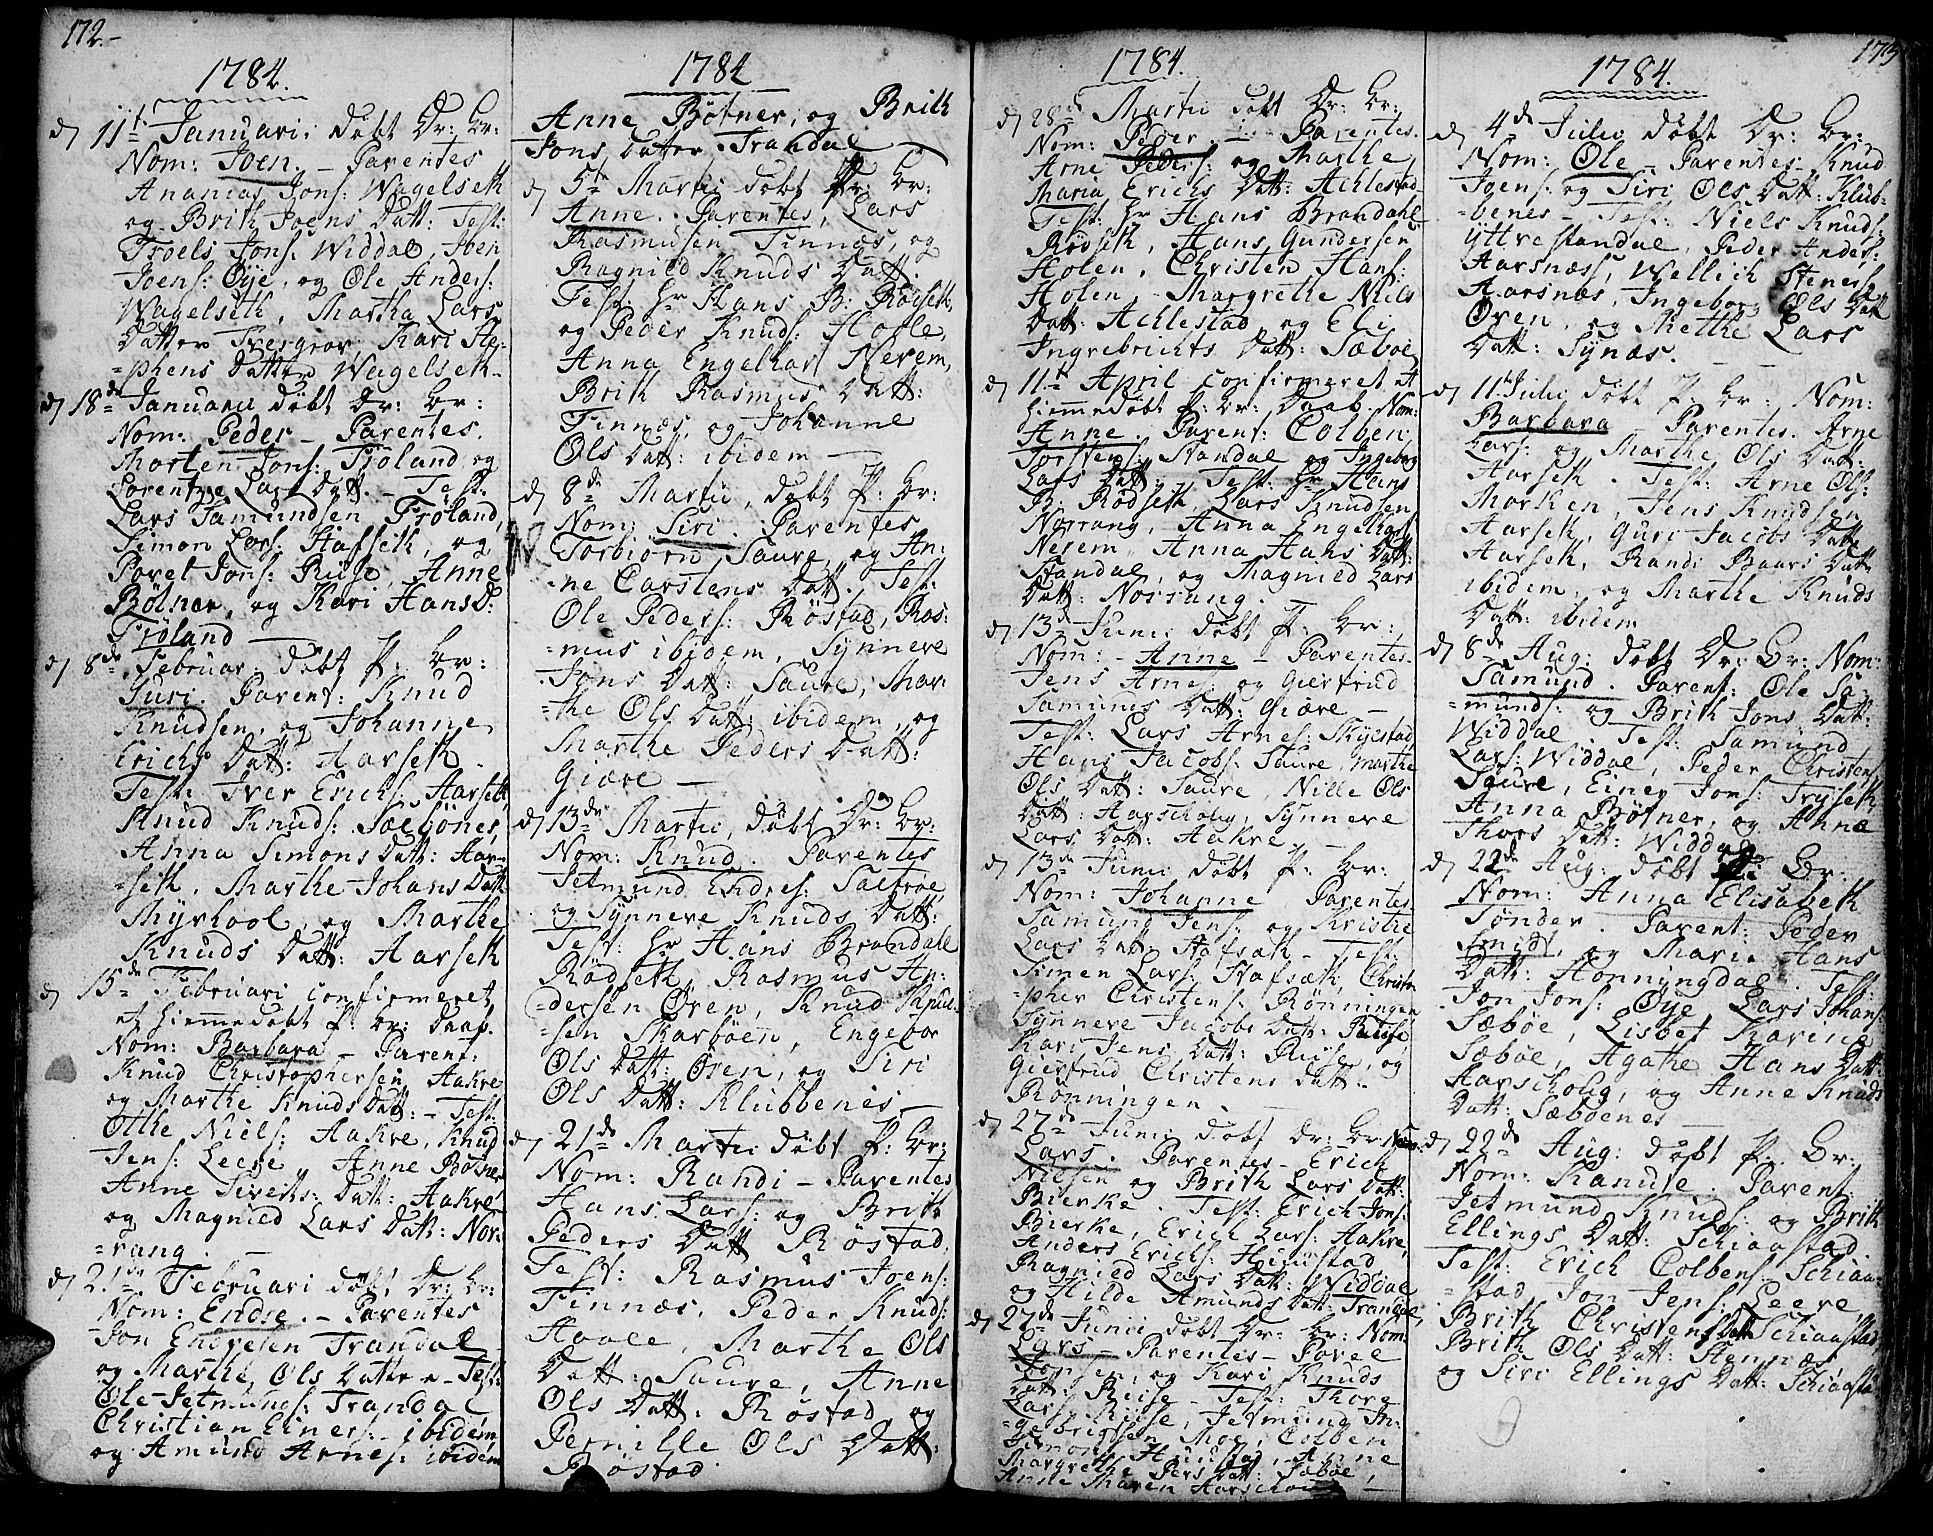 172.
1784.
d 11te Januari: döbt Dr: Br:
Nom: Joen. – Parentes
Ananias Jons: Wagelseth
og Brith Joens Datt: Test:
Troels Jons: Widdal, Joen
Joens: Øye, og Ole Anders:
Wagelseth, Martha Lars
Datter Kari Ste-
=phens Datter Wagelseth.
d 18de Januarii döbt Dr: Br:
Nom: Peder – Parentes.
Morten Jons: Tröland og
Lorentze Lars Datt. – Test:
Lars Samundsen Tröland,
Simon Lars: Hafseth, og
Povel Jons: Riise, Anne
Bötner, og Kari Hans D:
Tröland –
d 8de Februar: döbt P: Br:
Guri. Parent: Knud
Knudsen, og Johanne
Erichs Datt: Aarseth.
Test: Iver Erichs: Aarseth,
Knud Knuds: Sæbönes,
Anna Simons Datt: Aar-
=seth, Marthe Johans Datt
Myrhool, og Marthe
Knuds Datt: Aarseth
d 15de Februari confirmeret
et hiemedöbt P: Br: Daab.
Nom: Barbara – Parent:
Knud Christophersen Aakre
og Marthe Knuds Datt: – Test:
Othe Niels: Aakre, Knud
Jens: Leere, Anne Bötner
Anne Siverts: Datt: Aakre
og Magnild Lars Datt: Nor-
=rang. –
d 21de Februari döbt Dr: Br:
Nom: Endre. – Parentes
Jon Endresen Trandal
og Marthe Ols Datter – Test:
Ole Jetmunds: Trandal
Christian Einers: ibidem
og Amund Arnes: ibidem
1784
Anne Bötner, og Brith
Jons Datter Trandal –
d 5te Martii döbt Dr: Br:
Anne. Parentes, Lars
Rasmusen Finnæs, og
Ragnild Knuds Datt.
Test: Hr Hans B: Röiseth,
og Peder Knuds: Hofle,
Anna Engelhart Nerem,
Brith Rasmus Datt:
Finnæs, og Johanne
Ols Datt: ibidem –
d 8de Martii, döbt P: Br:
Nom: Siri. Parentes
Torbiörn Saure, og An-
=ne Carstens Datt. Test:
Ole Peders: Röstad, Ras-
=mus ibidem, Synneve
Jons Datt: Saure, Mar-
=the Ols Datt: ibidem, og
Marthe Peders Datt:
Giære –
d 13de Martii, döbt Dr: Br:
Nom: Knud. Parentes
Jetmund Endres: Sætröe
og Synneve Knuds Datt:
Test: Hr Hans Brandahl
Rödseth, Rasmus An-
=dersen Ören, Knud Knud-
=sen Skarböen, Engebor
Ols Datt: Ören, og Siri
Ols Datt: Klubbenes –
d 21de Martii döbt P: Br:
Nom: Randi – Parentes
Hans Lars: og Brith
Peders Datt Röstad.
Test: Rasmus Joens:
Finnæs, Peder Knuds:
Haale, Marthe Ols
Datt: Saure, Anne
Ols Datt: Röstad og
Pernille Ols Datt:
Röstad.
1784.
d 28de Martii döbt Dr: Br:
Nom: Peder – Parentes.
Arne Peders: og Marthe
Maria Erichs Datt: Achlestad
Test: Hr Hans Brandahl
Rödseth, Hans Gundersen
Holen, Christen Hans:
Holen, Margrethe Niels
Datt: Achlestad, og Eli
Ingebrichts Datt: Sæböe
d 11te April confirmeret et
hiemmedöbt P: Br: Daab. Nom:
Anne. Parent: Colben
Torstens: Standal og Ingebor
Lars Datt: Test: Hr Hans
B: Rödseth, Lars Knudsen
Norrang, Anna Engelhart
Nerem, Anna Hans Datt:
Standal, og Magnild Lars
Datt: Norrang.
d 13de Junii döbt P: Br:
Nom: Anne – Parentes
Jens Arnes: og Giertrud
Samunds Datt: Giære –
Test: Lars Arnes: Skyestad
Hans Jacobs: Saure, Marthe
Ols Datt: Saure, Nille Ols
Datt: Aarscholy, Synneve
Lars Datt: Aakre. –
d 13de Junii döbt P: Br:
Nom: Johanne Parentes
Samund Jens: og Kristie
Lars Datt: Hafsæth – Test:
Simen Lars: Hafsæth, Christo
=pher Christens: Rönningen
Synneve Jacobs Datt: Riise
Kari Jens Datt: Riise, og
Giertrud Christens Datt:
Rönningen –
d 27de Junii döbt Dr: Br: Nom:
Lars. Parentes – Erich
Nielsen og Brith Lars Datt:
Bierke. Test: Erich Jons:
Bierke, Erich Lars: Aakre,
Anders Erichs: Huustad
Ragnild Lars Datt: Widdal
og Hilde Amunds Datt: Trandal
d 27de Junii döbt Dr: Br: Nom:
Lars – Parentes – Povel
Jonsen, og Kari Knuds
Datt: Riise – Test: Thore
Lars: Riise, Jetmund In-
=gebrigtsen Moe, Colben
Simons: Huustad, Anne
Margrethe Pers Datt: Sæböe,
Anne Maren Aarschou –
173
1784.
d 4de Julii döbt Dr: Br:
Nom: Ole – Parentes – Knud
Joens: og Siri Ols Datt: Klub-
=benes – Test: Niels Knuds:
Yttrestandal, Peder Anders:
Aarsnæs, Wellich Steners:
Aarsnæs, Ingebor Ols Datt
Ören, og Methe Lars
Datt: Synæs. –
d 11te Julii döbt P: Br: Nom:
Barbara – Parentes. Arne
Lars: og Marthe Ols Datt:
Aarseth. Test: Arne Ols:
Morken, Jens Knudsen
Aarseth, Guri Jacobs Datt:
Aarseth, Randi Baars Datt
ibidem, og Marthe Knuds
Datt: ibidem
d 8de Aug: döbt Dr: Br: Nom:
Samund. Parent: Ole Sa-
=munds: og Brith Jons Datt:
Widdal. Test: Samund
Lars: Widdal, Peder Christens:
Saure, Einer Jons: Tryseth
Anna Bötner, og Anne
Thors Datt: Widdal
d 22de Aug: döbt Br:
Nom: Anna Elisabeth
Tönder. Parent: Peder
Smidt, og Mari Hans
Datt: Honningdal. Test:
Jon Jons: Øye, Lars Johans:
Sæböe, Lisbet Karine
Sæböe, Agathe Hans Datt:
Aarscholy, og Anne Knuds
Datt: Sæbönes –
d 22de Aug: döbt P: Br:
Nom: Kanute. Parent:
Jetmund Knuds: og Brith
Ellings Datt: Schiaastad.
Test: Erich Colbens: Schiaa-
=stad, Jon Jens: Leere,
Brith Christens Datt Schiaastad,
Brith Ols Datt: Stennæs
og Siri Ellings Datt: Schiaastad